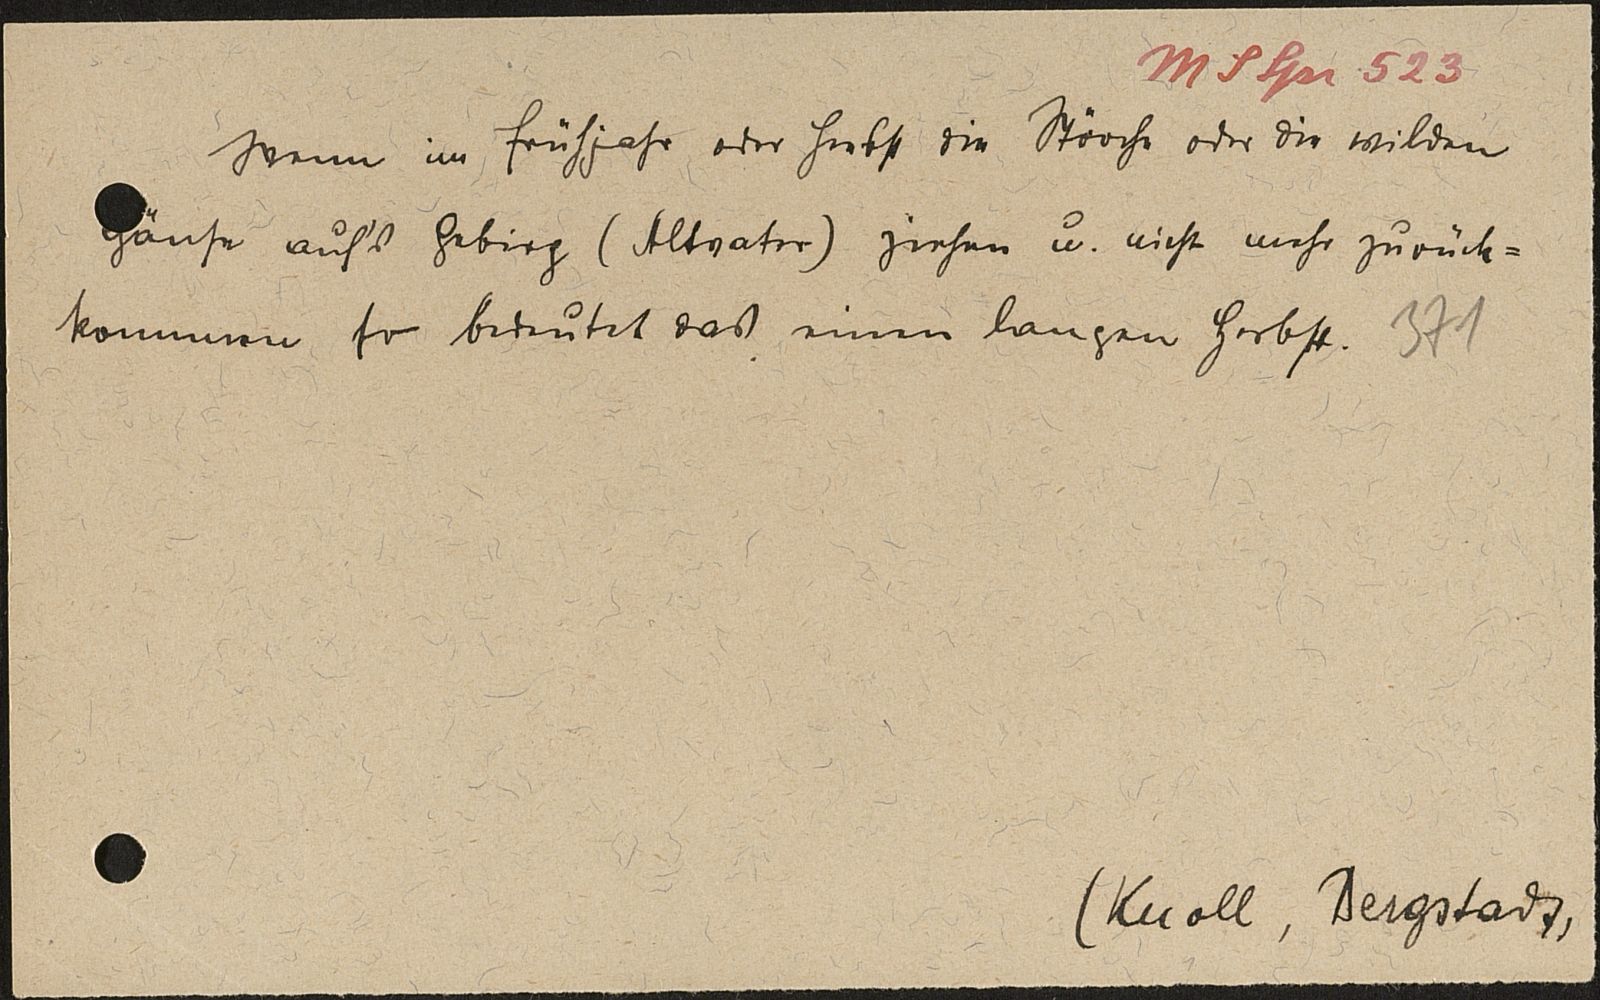 M S Spr 523
Wenn im Frühjahr oder Herbst die Störche oder die wilden
Gänse auf's Gebirg (Altvater) ziehen u. nicht mehr zurück=
kommen so bedeutet das einen langen Herbst. 371
(Knoll, Bergstadt,